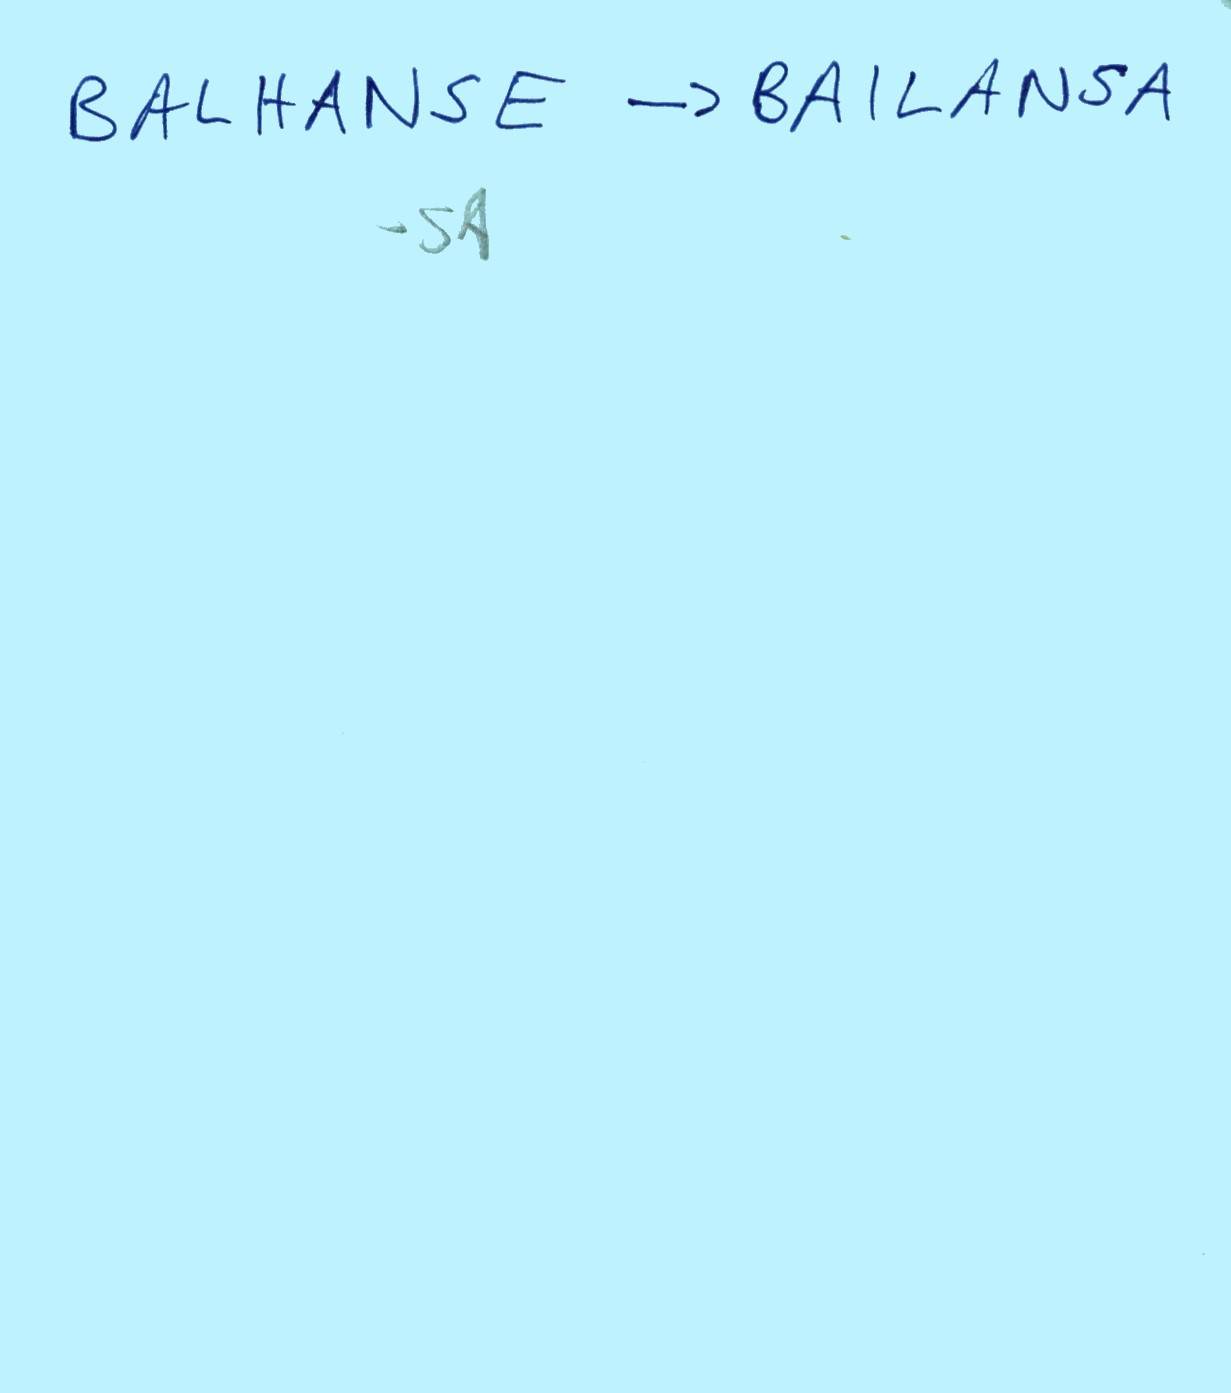 BALHANSE -> BAILANSA
-SA